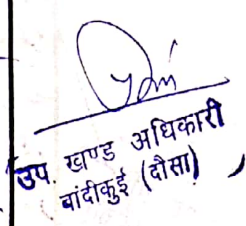 उप. खण्ड अधिकारी
बांदीकुई (दौसा)